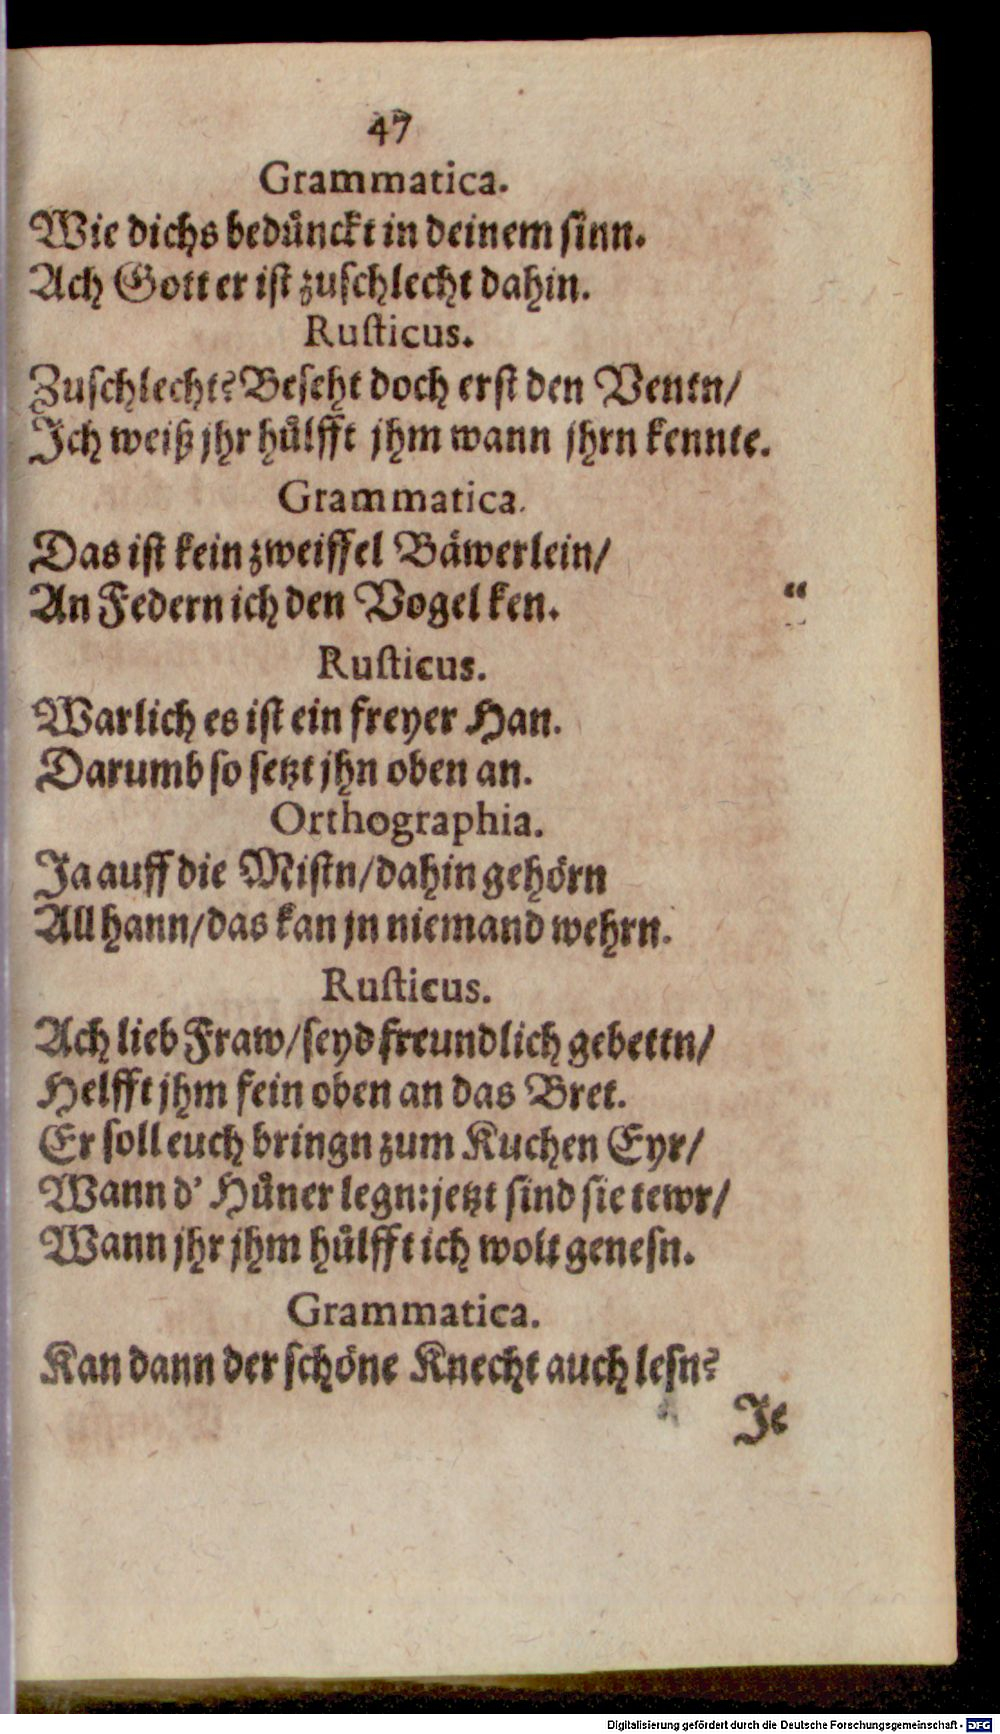 47
Grammatica.
Wie dichs bedůnckt in deinem sinn.
Ach Gott er ist zuschlecht dahin.
Rusticus.
Zuschlecht? Beseht doch erst den Ventn/
Jch weiß jhr hůlfft jhm wann jhrn kennte.
Grammatica.
Das ist kein zweiffel Bäwerlein/
An Federn ich den Vogel ken. “
Rusticus.
Warlich es ist ein freyer Han.
Darumb so setzt jhn oben an.
Orthographia.
Ja auff die Mistn/dahin gehörn
All hann/das kan jn niemand wehrn.
Rusticus.
Ach lieb Fraw/seyd freundlich gebettn/
Helfft jhm fein oben an das Bret.
Er soll euch bringn zum Kuchen Eyr/
Wann d' Hůner legn:jetzt sind sie tewr/
Wann jhr jhm hůlfft ich wolt genesn.
Grammatica.
Kan dann der schöne Knecht auch lesn?
Je
Digitalisierung gefördert durch die Deutsche Forschungsgemeinschaft - DFG